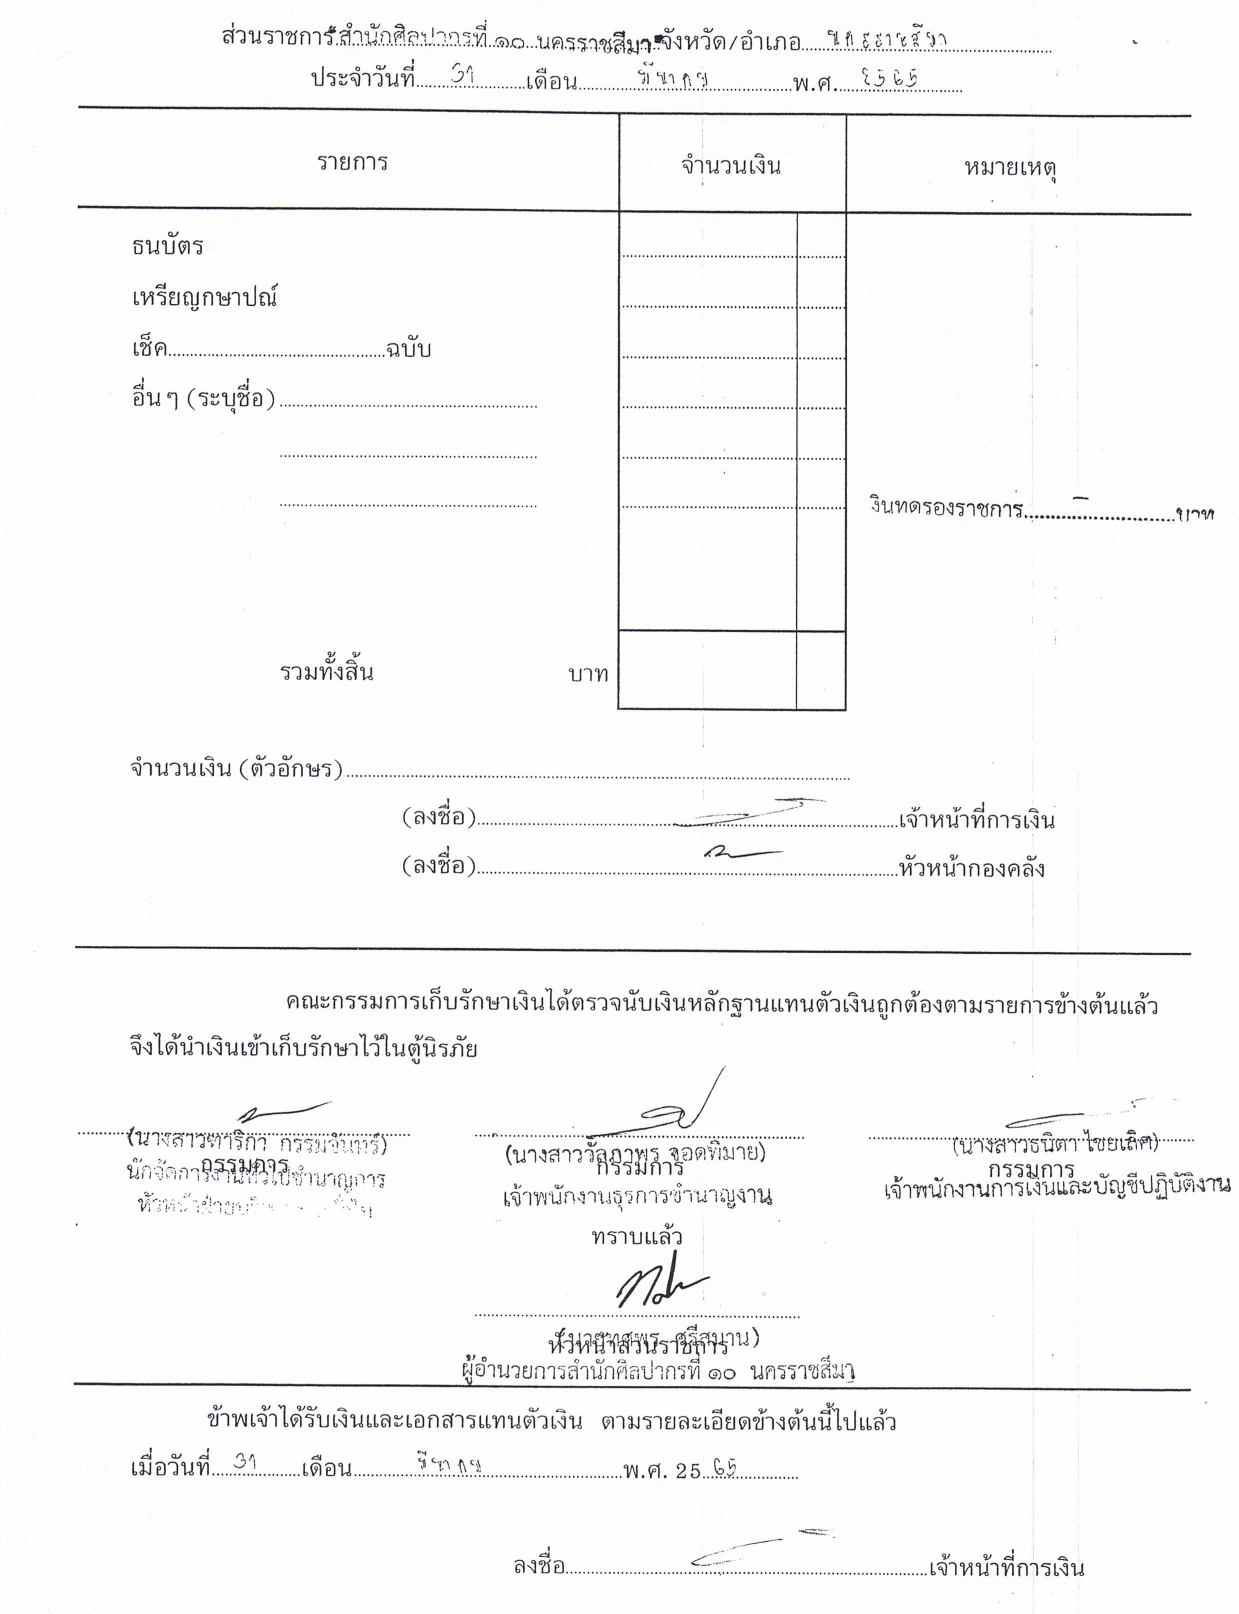 ส่วนราชการ สำนักศิลปากรที่ ๑๐ นครราชสีมา จังหวัด/อำเภอ นครราชสีมา
ประจำวันที่ 31 เดือน มีนาคม พ.ศ. 2565
รายการ จำนวนเงิน หมายเหตุ
ธนบัตร
เหรียญกษาปณ์
เช็ค ฉบับ
อื่น ๆ (ระบุชื่อ)
เงินทดรองราชการ - บาท
รวมทั้งสิ้น บาท
จำนวนเงิน (ตัวอักษร)
(ลงชื่อ) เจ้าหน้าที่การเงิน
(ลงชื่อ) หัวหน้ากองคลัง
คณะกรรมการเก็บรักษาเงินได้ตรวจนับเงินหลักฐานแทนตัวเงินถูกต้องตามรายการข้างต้นแล้ว
จึงได้นำเงินเข้าเก็บรักษาไว้ในตู้นิรภัย
(นางสาว กรรมจันทร์) (นางสาววัลภาพร จอดพิมาย) (นางสาวธนิตา ไชยเลิศ)
กรรมการ กรรมการ กรรมการ
นักจัดการงานทั่วไปชำนาญการ เจ้าพนักงานธุรการชำนาญงาน เจ้าพนักงานการเงินและบัญชีปฏิบัติงาน
ทราบแล้ว
ศรีสมาน)
หัวหน้าส่วนราชการ
ผู้อำนวยการสำนักศิลปากรที่ ๑๐ นครราชสีมา
ข้าพเจ้าได้รับเงินและเอกสารแทนตัวเงิน ตามรายละเอียดข้างต้นนี้ไปแล้ว
เมื่อวันที่ 31 เดือน มีนาคม พ.ศ. 25 65
ลงชื่อ เจ้าหน้าที่การเงิน